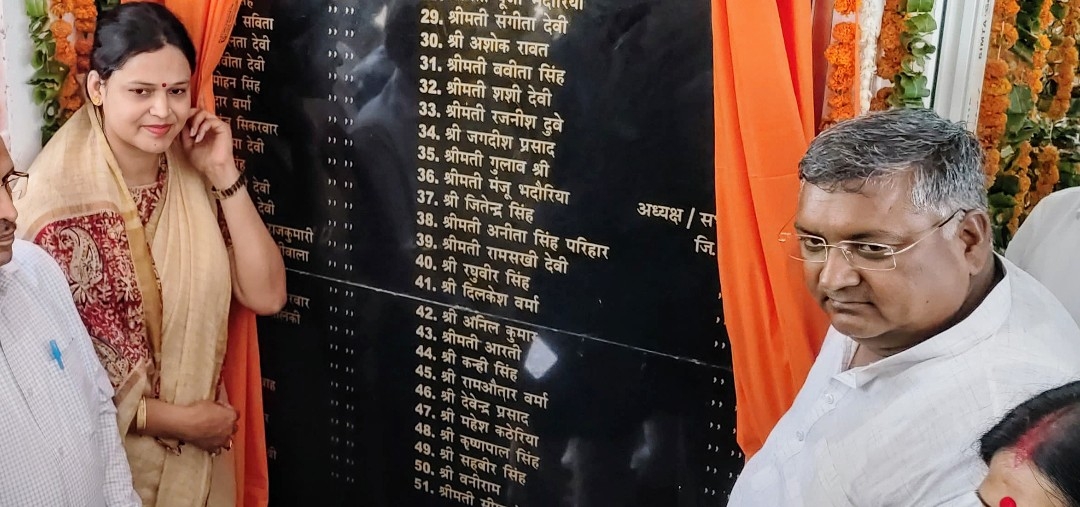 सविता
लता देवी
वीता देवी
मोहन सिंह
दार वर्मा
सिकरवार
मा देवी
देवी
देवी
राजकुमारी
ीवाला
29. श्रीमती संगीता देवी
30. श्री अशोक रावत
31. श्रीमती बवीता सिंह
32. श्रीमती शशी देवी
33. श्रीमती रजनीश दुवे
34. श्री जगदीश प्रसाद
35. श्रीमती गुलाव श्री
36. श्रीमती मंजू भदौरिया
37. श्री जितेन्द्र सिंह
38. श्रीमती अनीता सिंह परिहार
39. श्रीमती रामसखी देवी
40. श्री रघुवीर सिंह
41. श्री दिलकश वर्मा
42. श्री अनिल कुमार
43. श्रीमती आरती
44. श्री कन्ही सिंह
45. श्री रामऔतार वर्मा
46. श्री देवेन्द्र प्रसाद
47. श्री महेश कठेरिया
48. श्री कृष्णपाल सिंह
49. श्री सहवीर सिंह
50. श्री वनीराम
51. श्रीमती
अध्यक्ष / स
जि.
SIMTA